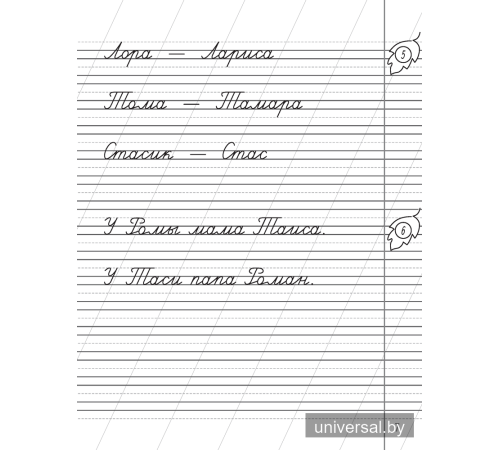 Лора — Лариса
5
Тома — Тамара
Стасик — Стас
У Ромы мама Таиса.
6
У Таси папа Роман.
universal.by